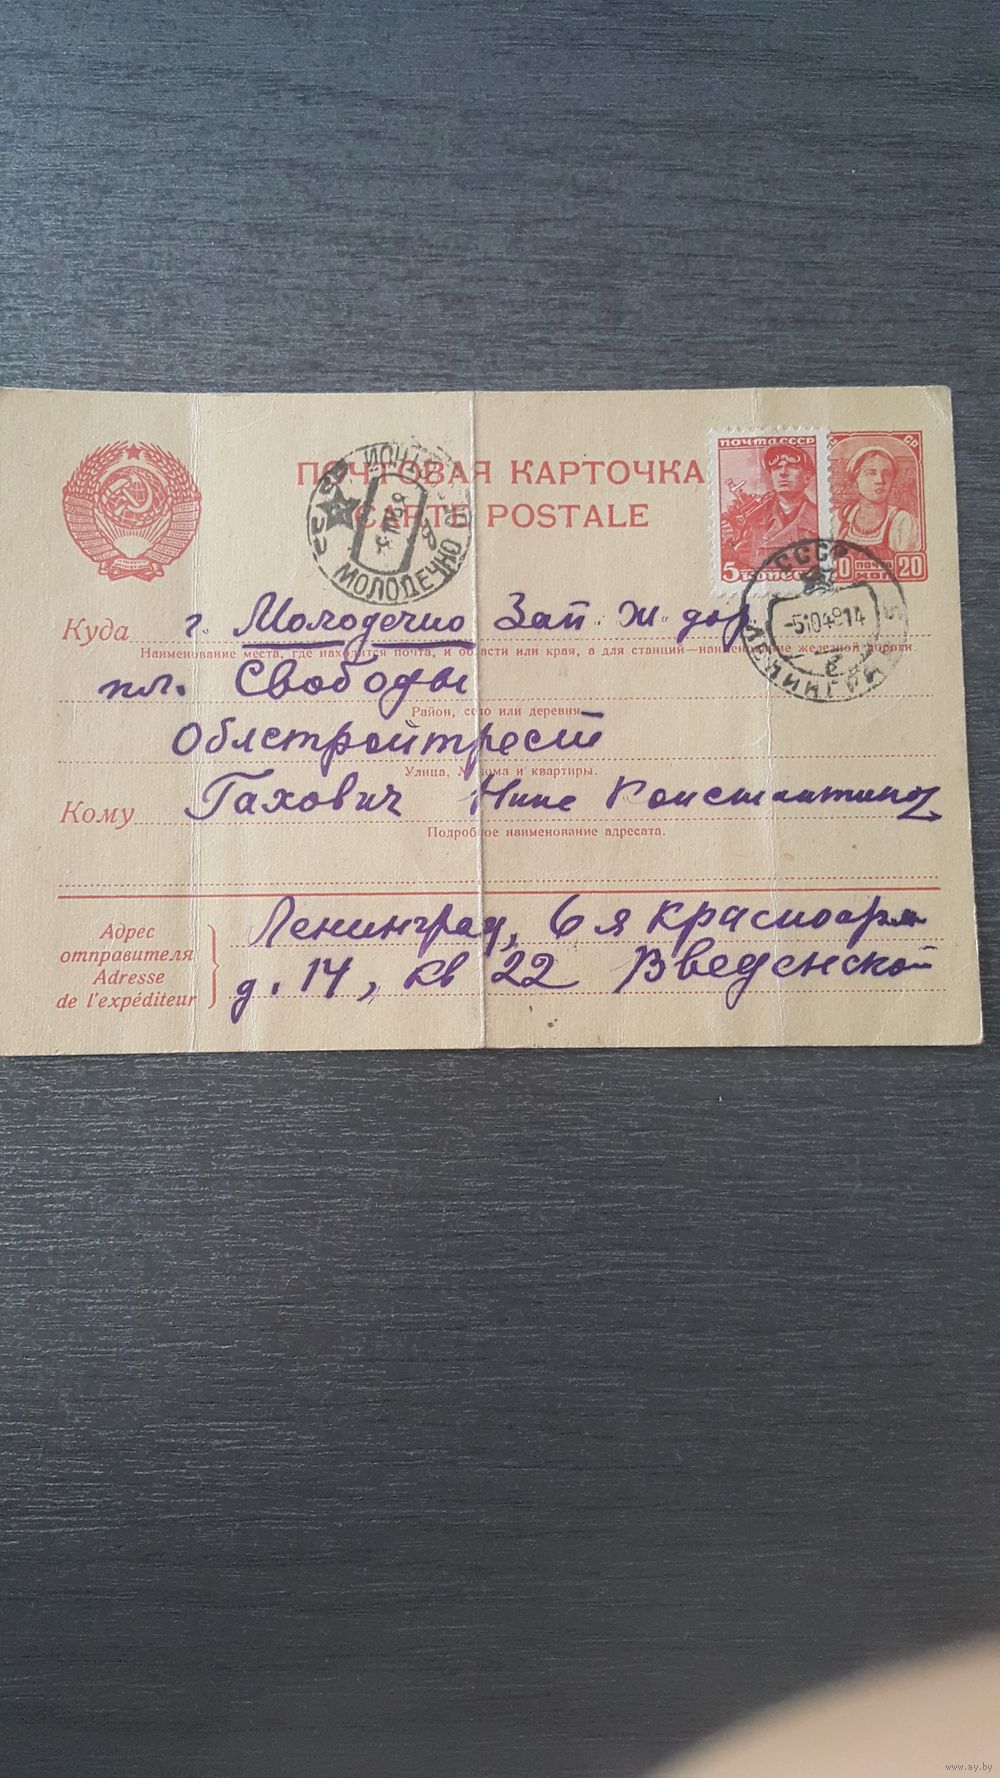 ПОЧТОВАЯ КАРТОЧКА
CARTE POSTALE
ПОЧТА СССР
5 КОПЕЕК
СР
ПОЧТА
КОП. 20
МОЛОДЕЧНО
СССР
-5 10 48 14
ЛЕНИНГРАД
Куда г. Молодечно Зап. ж. дор.
Наименование места, где находится почта, и области или края, а для станций—наименование железной дороги.
пл. Свободы
Район, село или деревня.
Облстройтрест
Улица, № дома и квартиры.
Кому Гахович Нине Константинов
Подробное наименование адресата.
Адрес отправителя
Adresse de l'expéditeur
Ленинград, 6я Красноарм
д. 14, кв 22 Введенской
www.ay.by